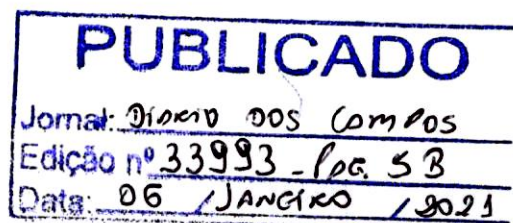 PUBLICADO
Jornal: DIÁRIO DOS CAMPOS
Edição nº 33993 - PÁG. 5B
Data: 06 / JANEIRO / 2021